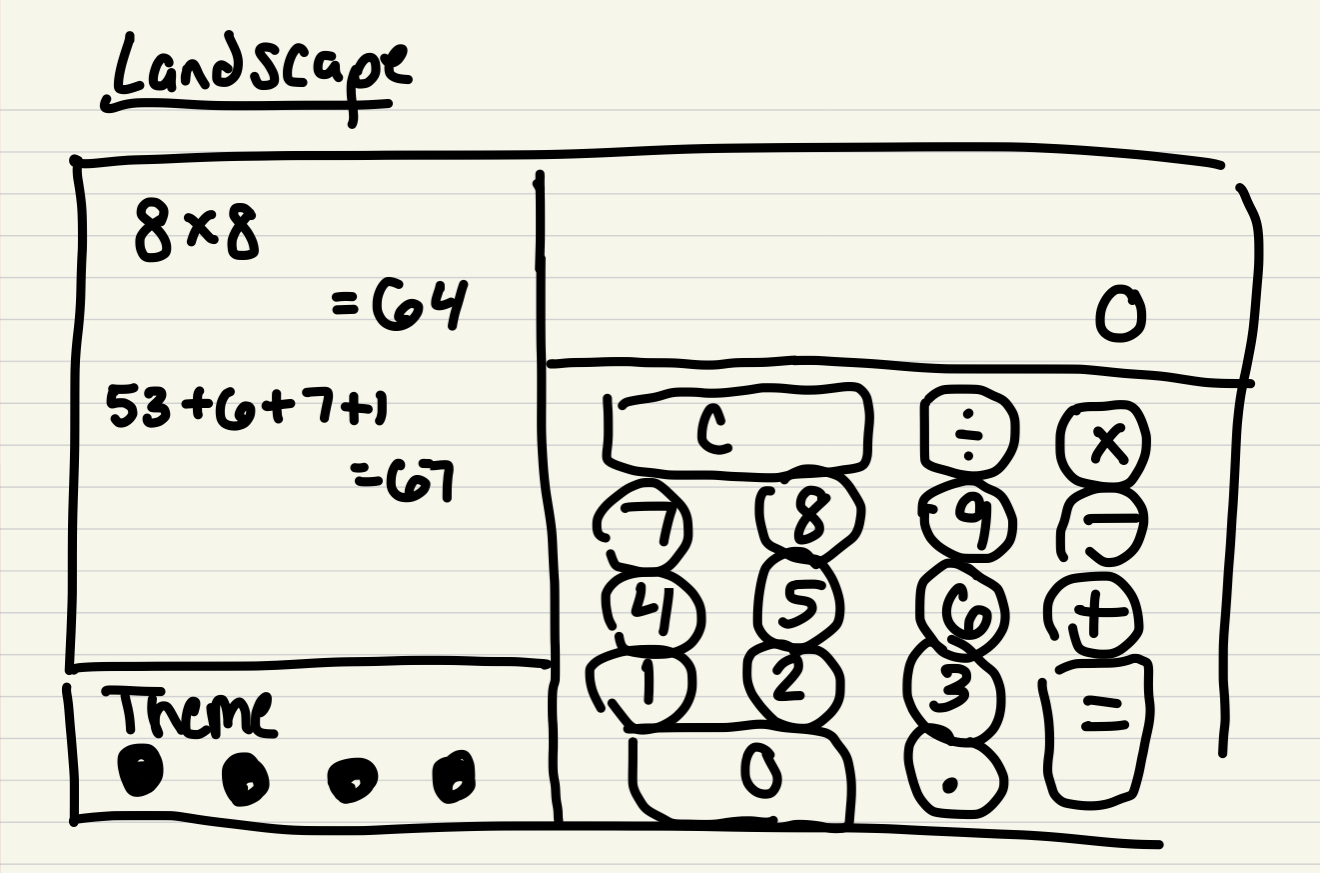 Landscape
8×8
=64
53+6+7+1
=67
Theme
0
C ÷ ×
7 8 9 −
4 5 6 +
1 2 3 =
0 .